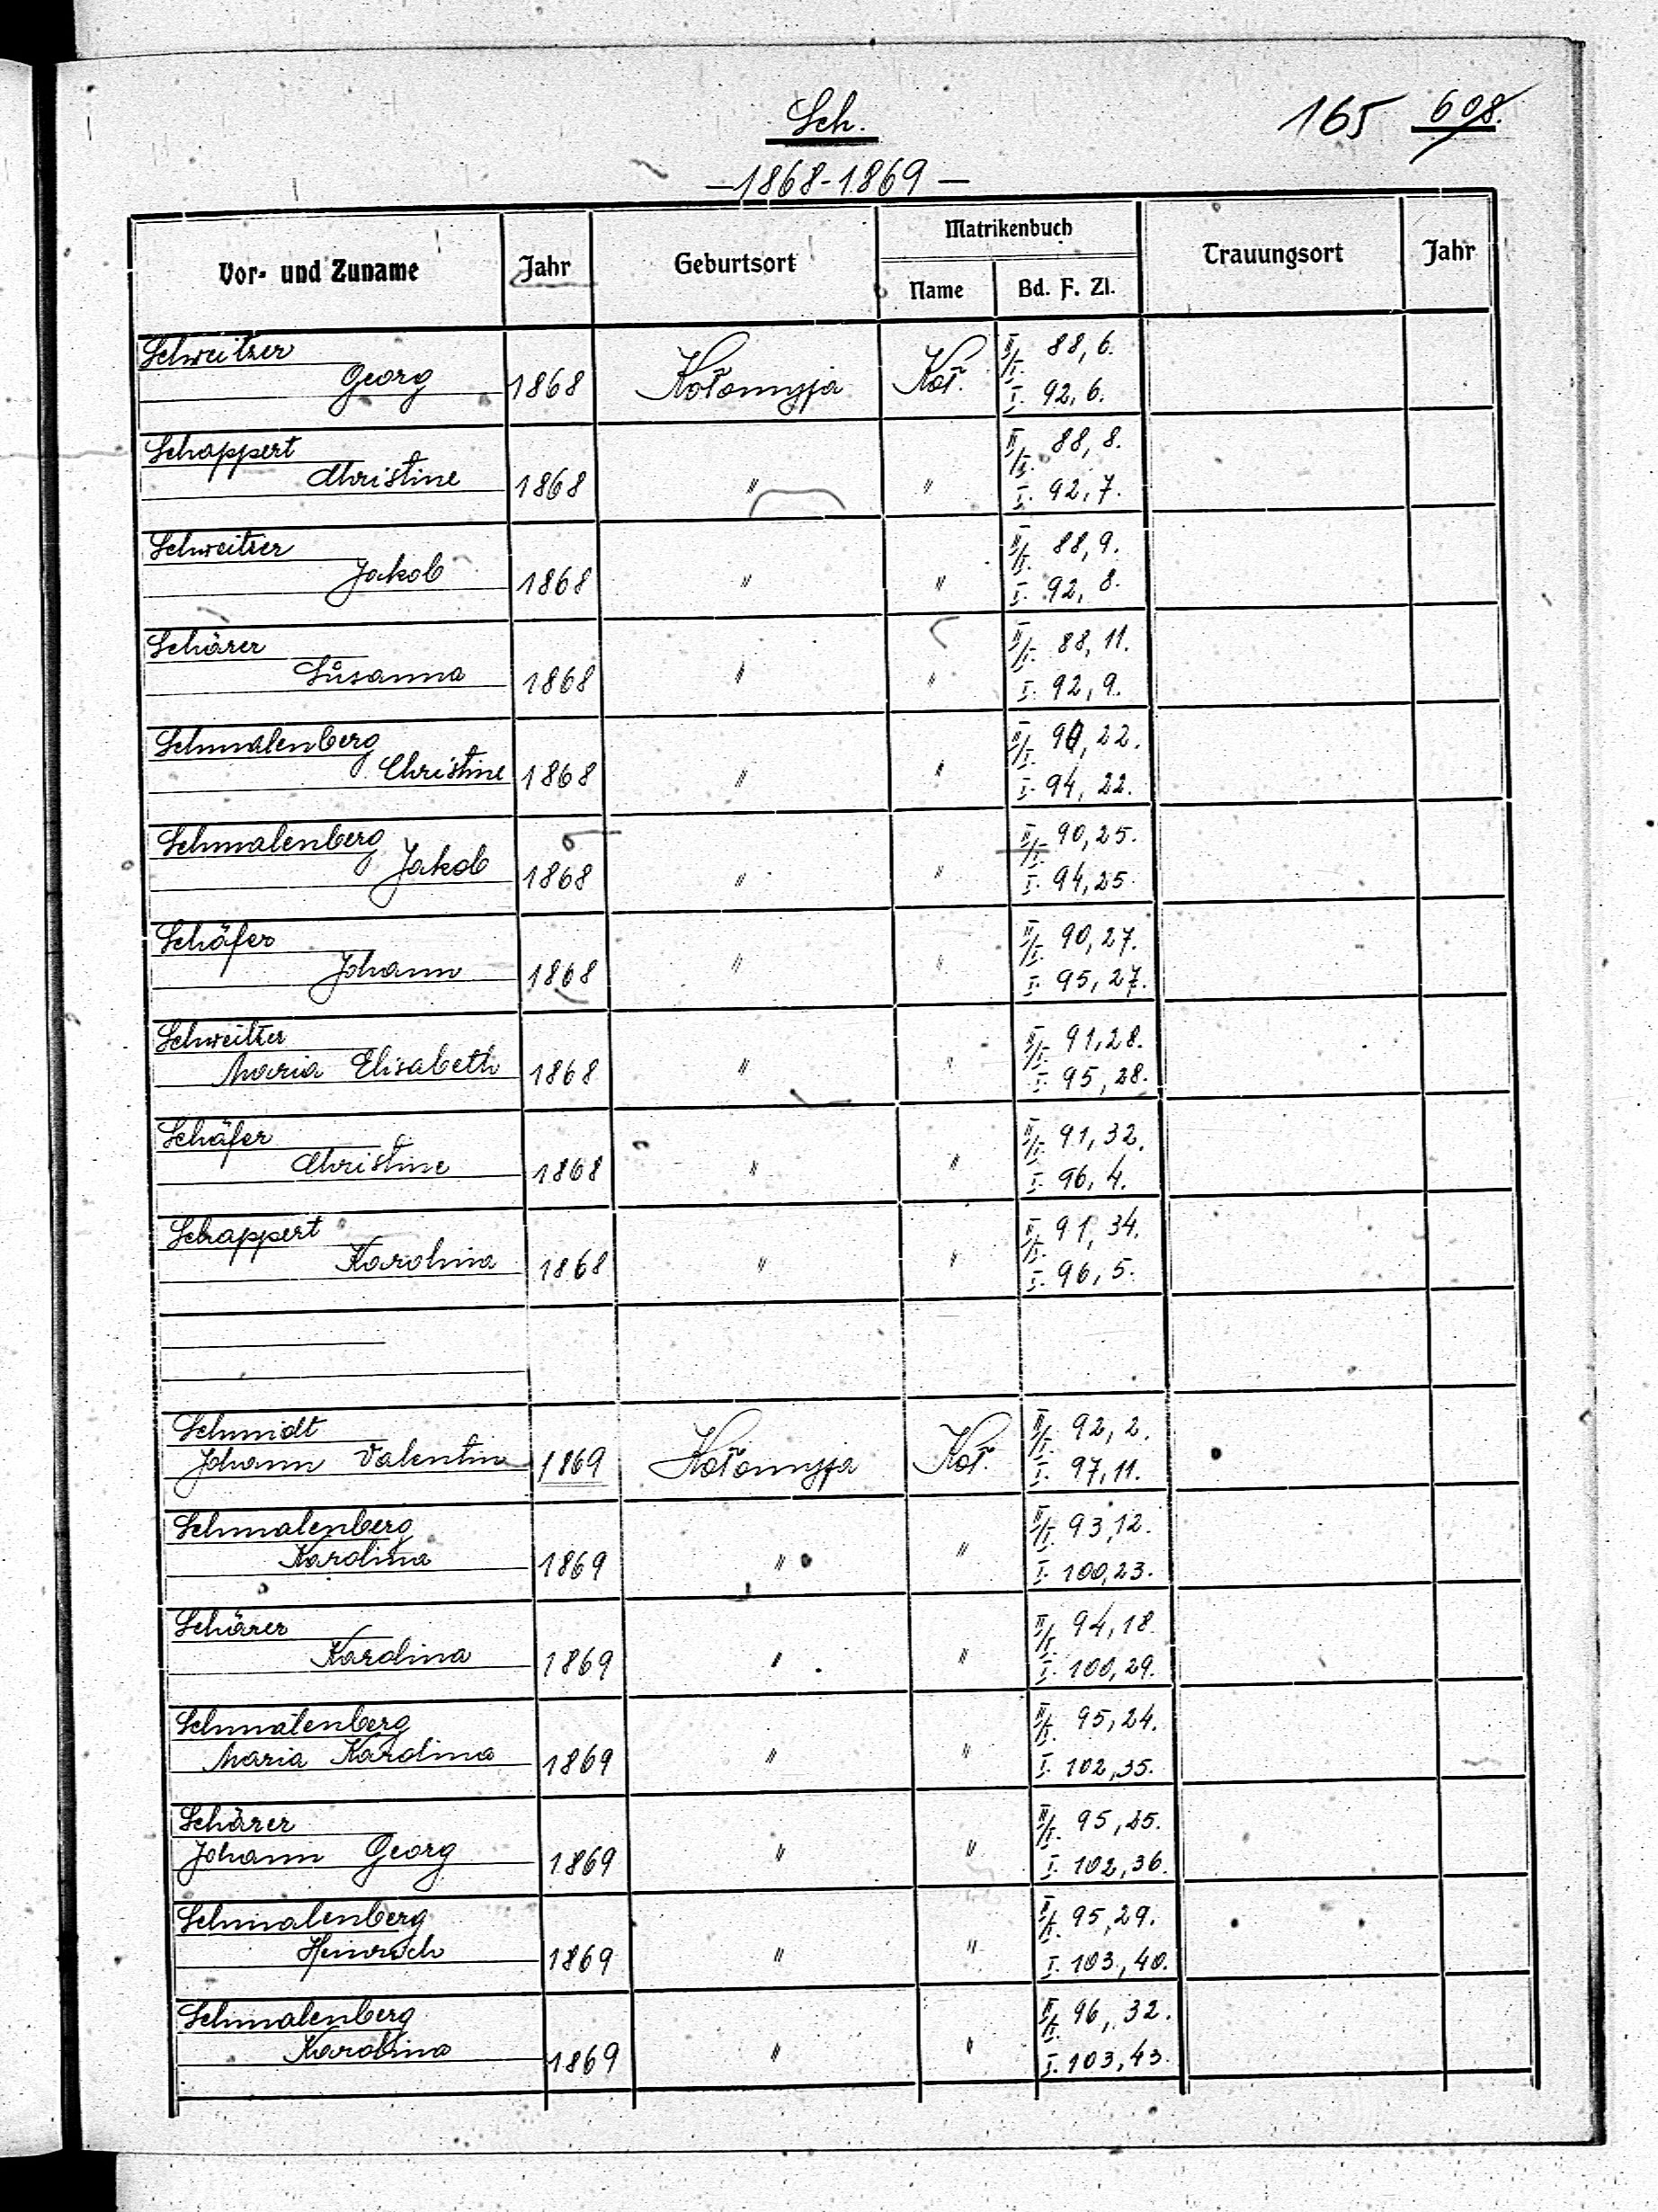 Sch.
165 608.
-1868-1869-
Vor- und Zuname Jahr Geburtsort Matrikenbuch Trauungsort Jahr
Name Bd. F. Zl.
Schweitzer II/I. 88, 6.
Georg 1868 Kołomyja Koł. I. 92, 6.
Schappert II/I. 88, 8.
Christine 1868 " " I. 92, 7.
Schweitzer II/I. 88, 9.
Jakob 1868 " " I. 92, 8.
Schärer II/I. 88, 11.
Sůsanna 1868 " " I. 92, 9.
Schmalenberg II/I. 90, 22.
Christine 1868 " " I. 94, 22.
Schmalenberg II/I. 90, 25.
Jakob 1868 " " I. 94, 25.
Schäfer II/I. 90, 27.
Johann 1868 " " I. 95, 27.
Schweitzer II/I. 91, 28.
Maria Elisabeth 1868 " " I. 95, 28.
Schäfer II/I. 91, 32.
Christine 1868 " " I. 96, 4.
Schappert II/I. 91, 34.
Karolina 1868 " " I. 96, 5.
Schmidt II/I. 92, 2.
Johann Valentin 1869 Kołomyja Koł. I. 97, 11.
Schmalenberg II/I. 93, 12.
Karolina 1869 " " I. 100, 23.
Schärer II/I. 94, 18.
Karolina 1869 " " I. 100, 29.
Schmalenberg II/I. 95, 24.
Maria Karolina 1869 " " I. 102, 35.
Schärer II/I. 95, 25.
Johann Georg 1869 " " I. 102, 36.
Schmalenberg II/I. 95, 29.
Heinrich 1869 " " I. 103, 40.
Schmalenberg II/I. 96, 32.
Karolina 1869 " " I. 103, 43.